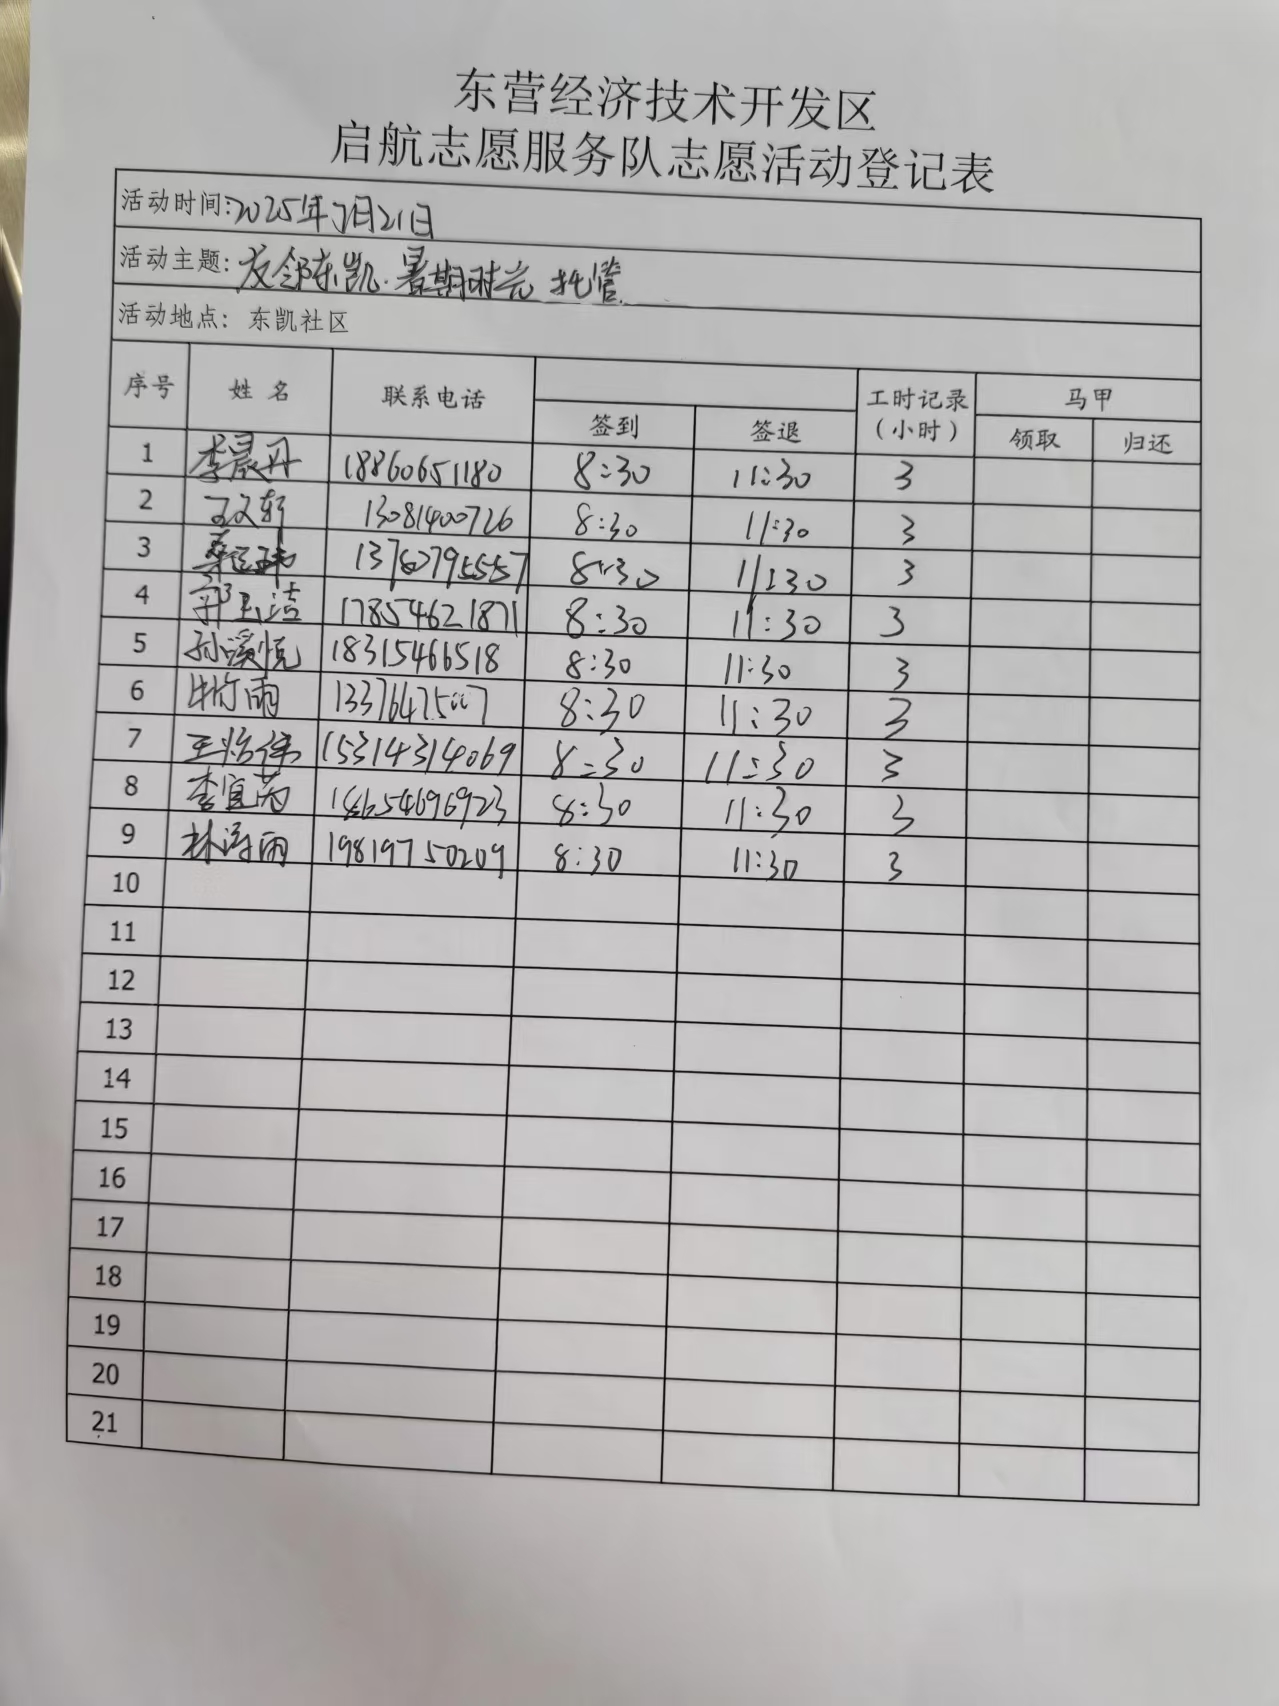 东营经济技术开发区
启航志愿服务队志愿活动登记表
活动时间:2025年7月21日
活动主题:友邻东凯.暑期时光 托管
活动地点: 东凯社区
序号 姓名 联系电话 签到 签退 工时记录(小时) 马甲 领取 归还
1 李晨丹 18860651180 8:30 11:30 3
2 王文轩 13081400726 8:30 11:30 3
3 8:30 11:30 3
4 郭玉洁 17854621871 8:30 11:30 3
5 孙溪悦 18315466518 8:30 11:30 3
6 8:30 11:30 3
7 15314314069 8:30 11:30 3
8 李宜芮 18654696923 8:30 11:30 3
9 林海雨 19819750209 8:30 11:30 3
10
11
12
13
14
15
16
17
18
19
20
21